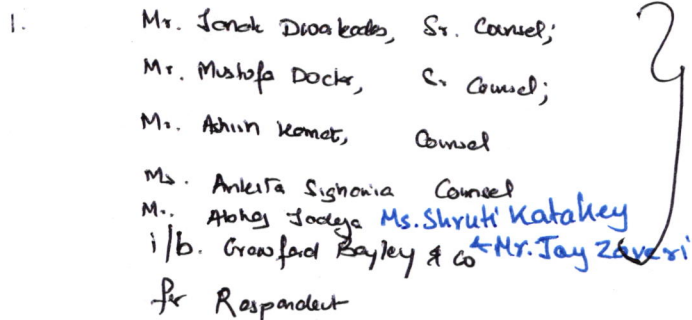 1. Mr. Janak Dwarkadas, Sr. Counsel;
Mr. Mustafa Doctor, Sr. Counsel;
Mr. Ashish Kamat, Counsel
Ms. Ankita Singhania Counsel
Mr. Abhay Jadeja Ms. Shruti Katakey
i/b. Crawford Bayley & Co & Mr. Jay Zaveri
for Respondent